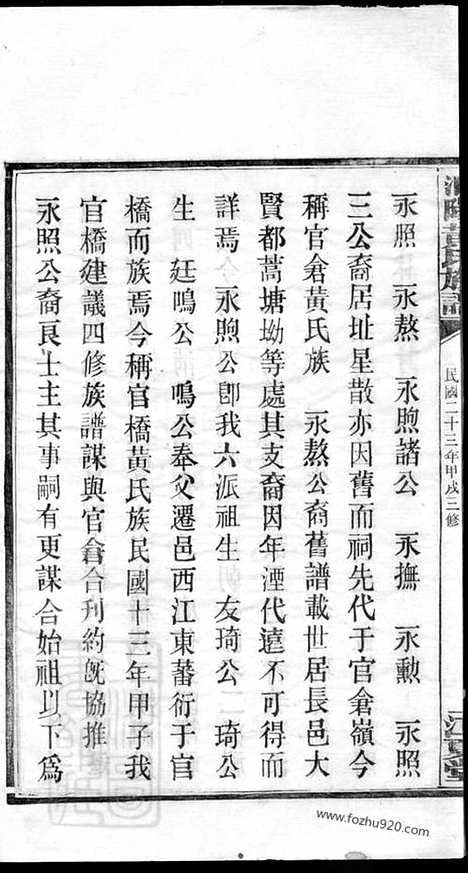 黃氏族譜
民國二十三年甲戌三修
永照　永熬　永煦諸公　永撫　永勳　永照
三公裔居址星散亦因舊而祠先代于官倉嶺今
稱官倉黃氏族　永熬公裔舊譜載世居長邑大
賢都蒿塘坳等處其支裔因年湮代遠不可得而
詳焉今　永煦公卽我六派祖生　友琦公二　琦公
生　廷鳴公　鳴公奉父遷邑西江東蕃衍于官
橋而族焉今稱官橋黃氏族民國十三年甲子我
官橋建議四修族譜謀與官倉合刊約旣協推
永照公裔良士主其事嗣有更謀合始祖以下爲
www.fozhu920.com